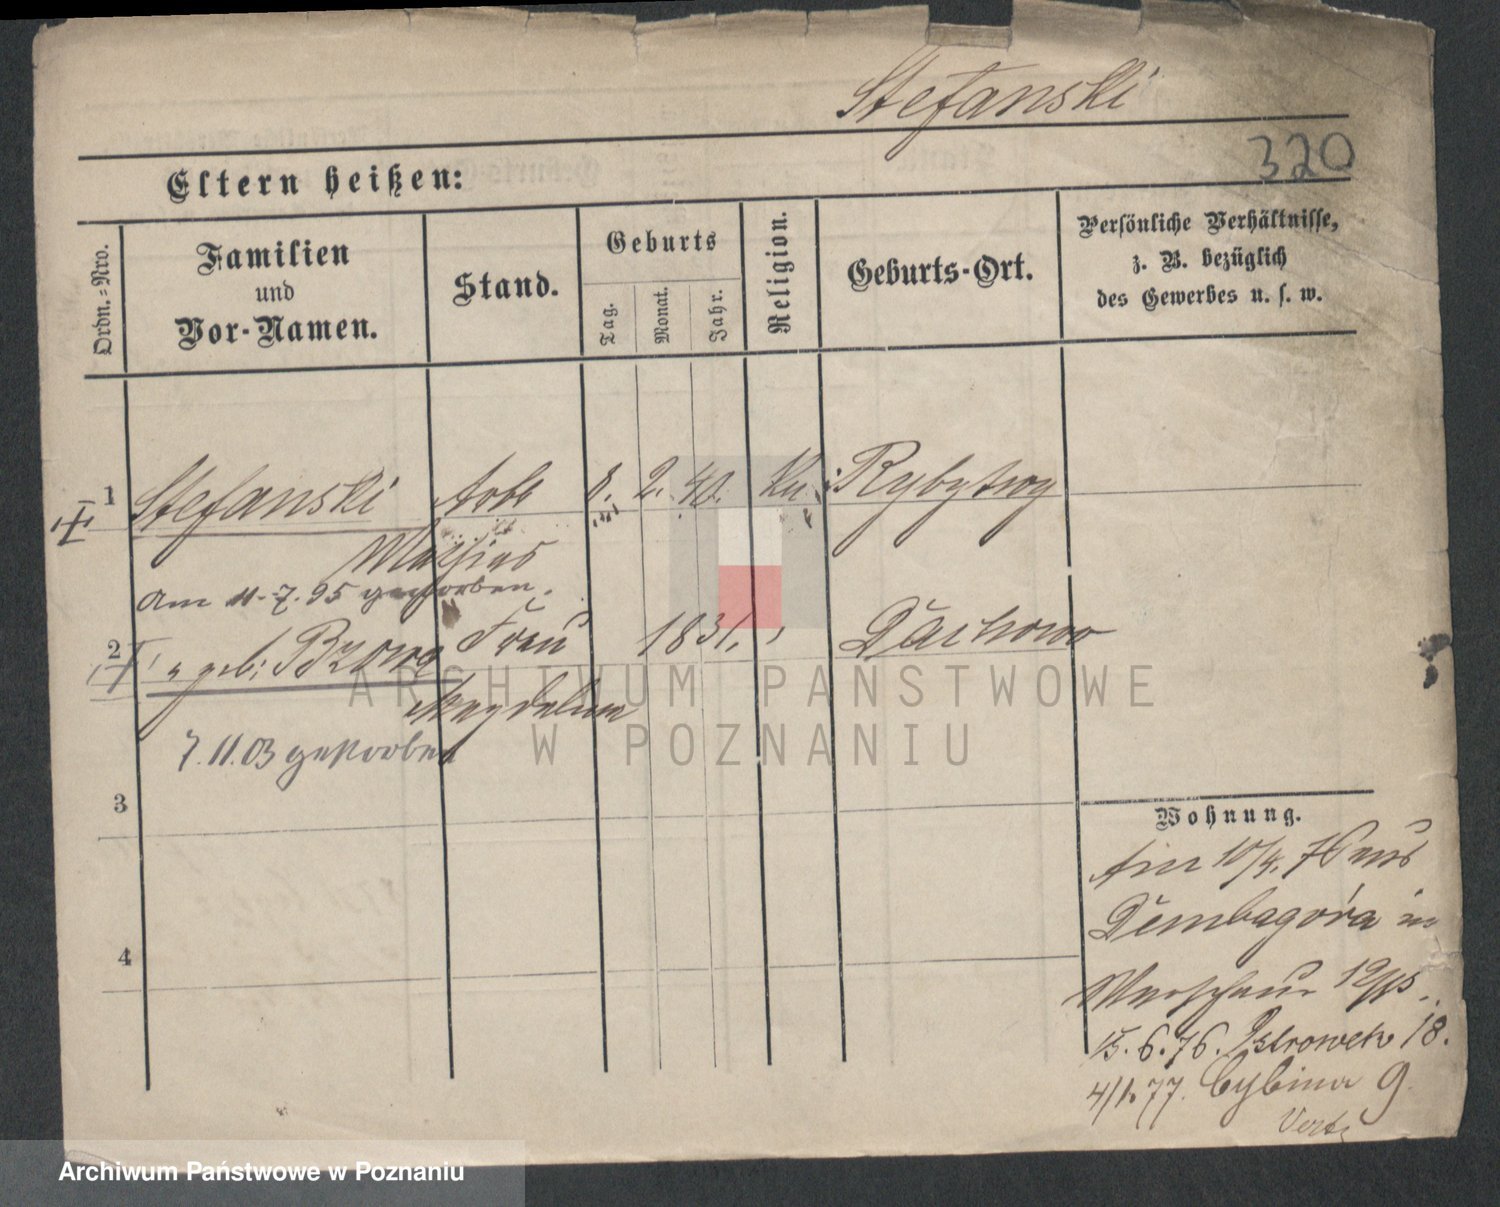 Stefanski
320
Eltern heißen:
Ordn.=Nro.
Familien
und
Vor-Namen.
Stand.
Geburts
Tag.
Monat.
Jahr.
Religion.
Geburts-Ort.
Persönliche Verhältnisse,
z. B. bezüglich
des Gewerbes u. s. w.
1 Stefanski Arb 8. 2. 40. Rybytwy
Mathias
Am 11.7.95 gestorben.
2 geb: Brzowa Frau 1831. Dachowo
Magdalena
7.11.03 gestorben
3
4
Wohnung.
Am 10/4. 76 aus
Dembagóra in
Warschauer 12/13.
15.6.76. Ostrowek 18.
4/1.77. Cybina 9.
Vert
ARCHIWUM PAŃSTWOWE
W POZNANIU
Archiwum Państwowe w Poznaniu